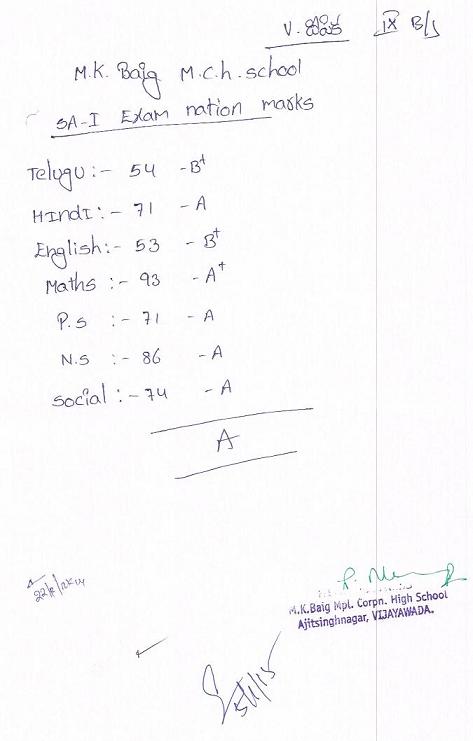 IX B/S
M.K. Baig M.C.h. school
SA-I Exam nation marks
Telugu :- 54 - B+
Hindi :- 71 - A
English :- 53 - B+
Maths :- 93 - A+
P.s :- 71 - A
N.S :- 86 - A
social :- 74 - A
A
M.K.Baig Mpl. Corpn. High School
Ajitsinghnagar, VIJAYAWADA.